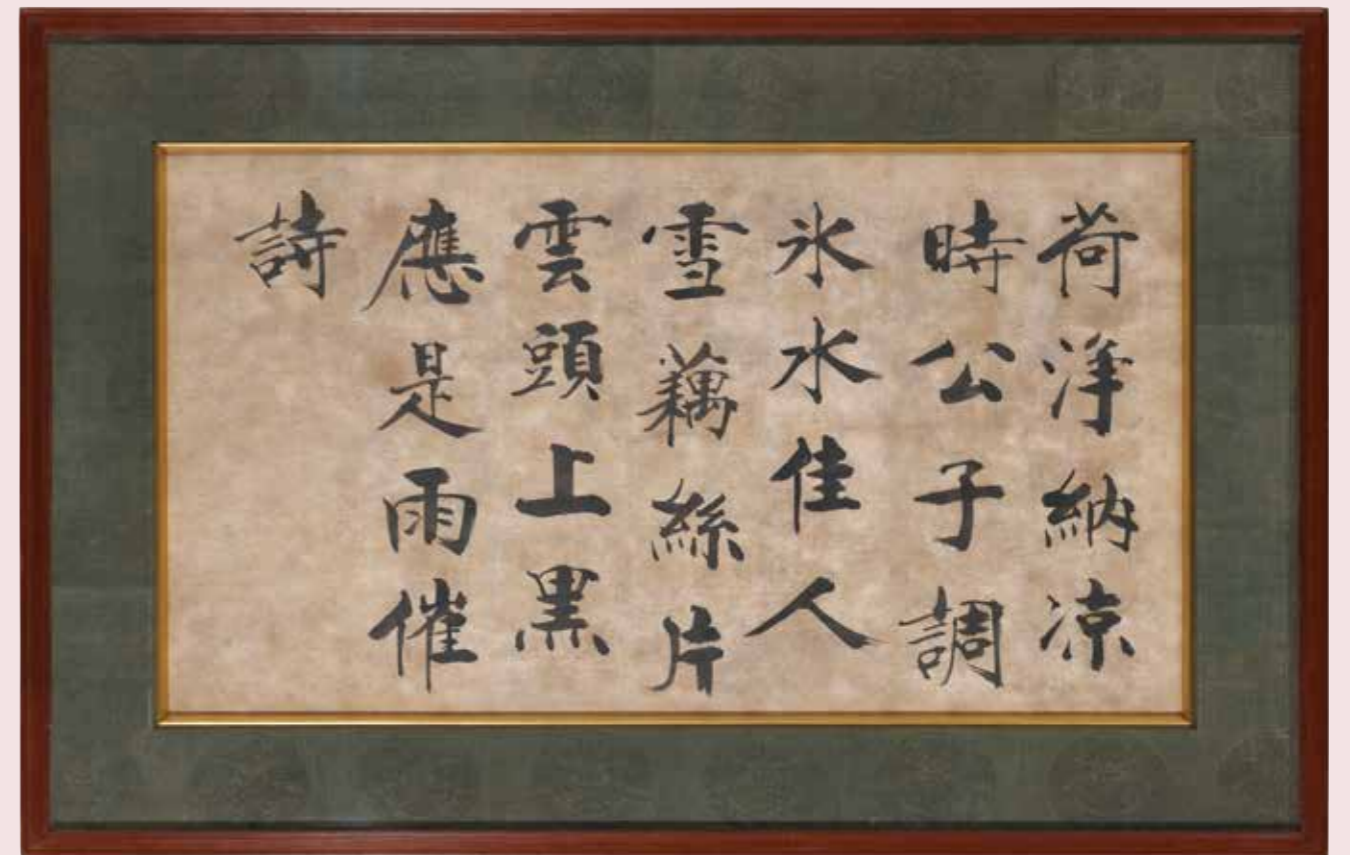 荷淨納涼
時公子調
氷水佳人
雪藕絲片
雲頭上黒
應是雨催
詩